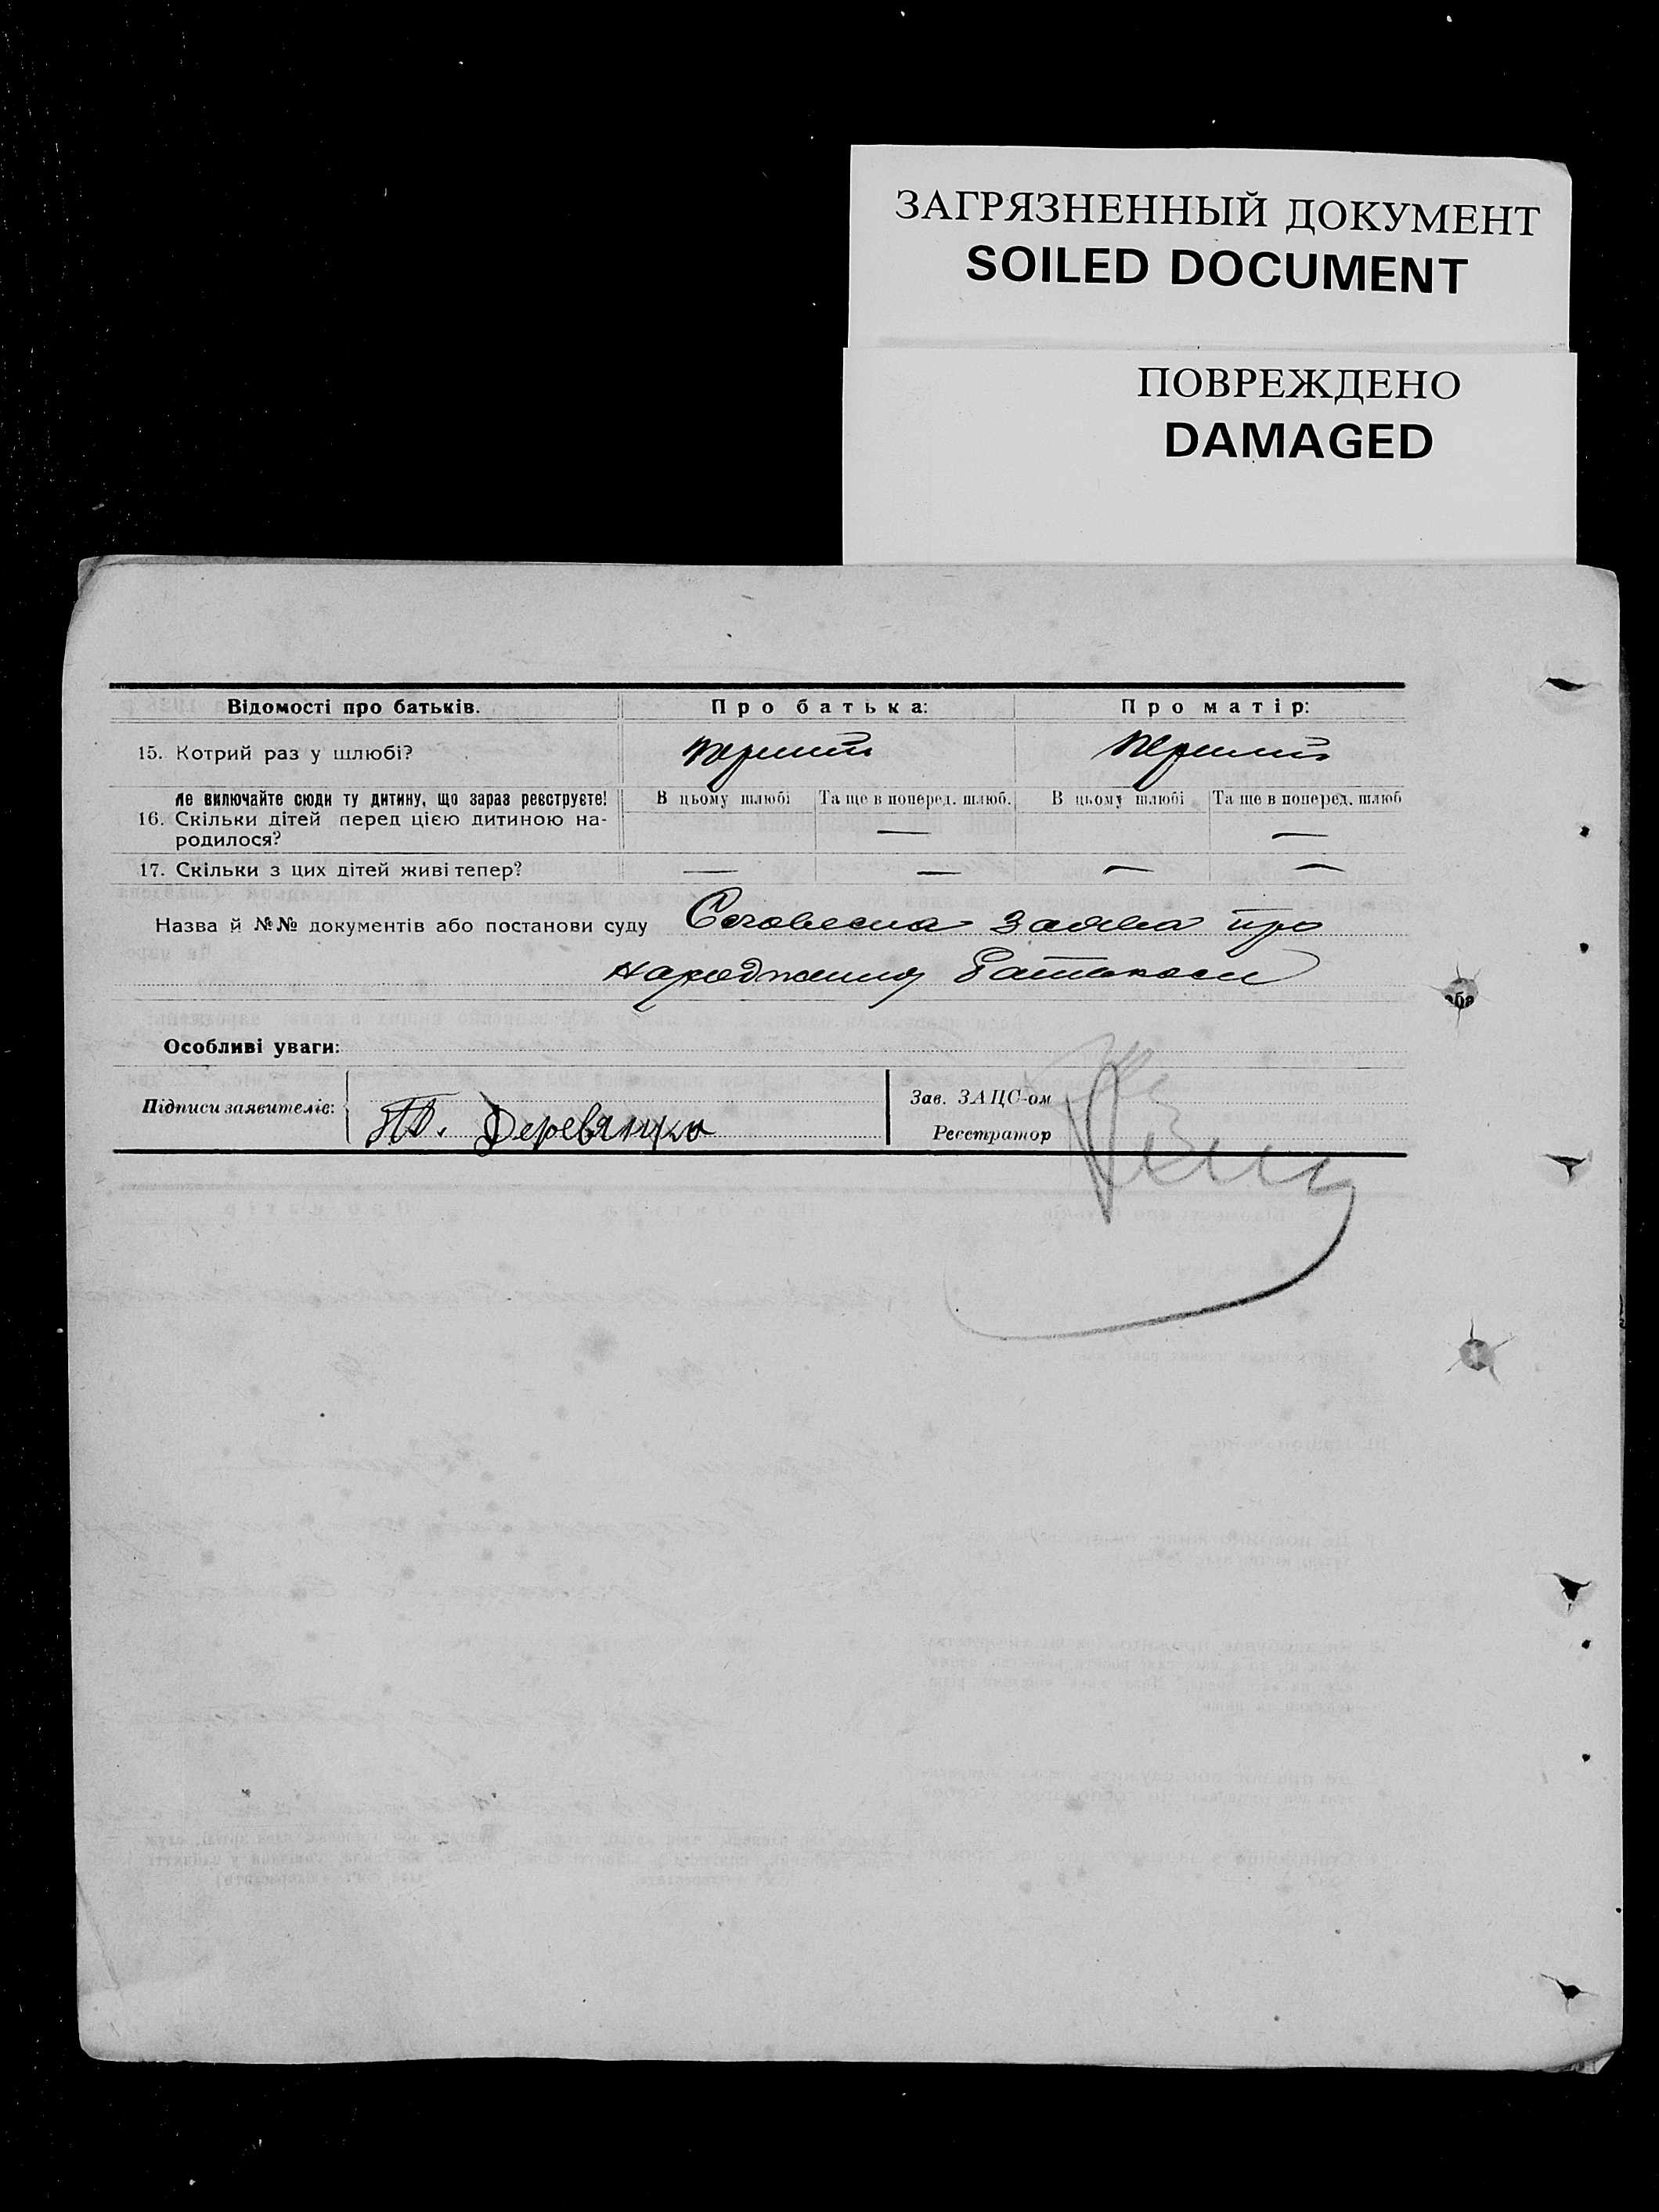 ЗАГРЯЗНЕННЫЙ ДОКУМЕНТ
SOILED DOCUMENT
ПОВРЕЖДЕНО
DAMAGED
Відомості про батьків. Про батька: Про матір:
15. Котрий раз у шлюбі? перший перший
Не включайте сюди ту дитину, що зараз реєструєте! В цьому шлюбі Та ще в поперед. шлюб. В цьому шлюбі Та ще в поперед. шлюб
16. Скільки дітей перед цією дитиною на-
родилося? — —
17. Скільки з цих дітей живі тепер? — — — —
Назва й №№ документів або постанови суду Словесна заява про
народження
аба
Особливі уваги:
Підписи заявителів: Деревянко
Зав. ЗАЦС-ом
Реєстратор